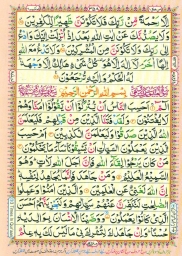 اِلَّا رَحْمَةً مِّنْ رَّبِّكَ فَلَا تَكُوْنَنَّ ظَهِيْرًا لِّلْكٰفِرِيْنَ
وَلَا يَصُدُّنَّكَ عَنْ اٰيٰتِ اللّٰهِ بَعْدَ اِذْ اُنْزِلَتْ اِلَيْكَ وَادْعُ
اِلٰى رَبِّكَ وَلَا تَكُوْنَنَّ مِنَ الْمُشْرِكِيْنَ وَلَا تَدْعُ مَعَ اللّٰهِ
اِلٰهًا اٰخَرَ لَآ اِلٰهَ اِلَّا هُوَ كُلُّ شَيْءٍ هَالِكٌ اِلَّا وَجْهَهٗ
لَهُ الْحُكْمُ وَاِلَيْهِ تُرْجَعُوْنَ
بِسْمِ اللّٰهِ الرَّحْمٰنِ الرَّحِيْمِ
الٓمّٓ اَحَسِبَ النَّاسُ اَنْ يُّتْرَكُوْٓا اَنْ يَّقُوْلُوْٓا اٰمَنَّا وَهُمْ
لَا يُفْتَنُوْنَ وَلَقَدْ فَتَنَّا الَّذِيْنَ مِنْ قَبْلِهِمْ فَلَيَعْلَمَنَّ اللّٰهُ
الَّذِيْنَ صَدَقُوْا وَلَيَعْلَمَنَّ الْكٰذِبِيْنَ اَمْ حَسِبَ الَّذِيْنَ
يَعْمَلُوْنَ السَّيِّاٰتِ اَنْ يَّسْبِقُوْنَا سَآءَ مَا يَحْكُمُوْنَ مَنْ
كَانَ يَرْجُوْا لِقَآءَ اللّٰهِ فَاِنَّ اَجَلَ اللّٰهِ لَاٰتٍ وَهُوَ
السَّمِيْعُ الْعَلِيْمُ وَمَنْ جَاهَدَ فَاِنَّمَا يُجَاهِدُ لِنَفْسِهٖ
اِنَّ اللّٰهَ لَغَنِيٌّ عَنِ الْعٰلَمِيْنَ وَالَّذِيْنَ اٰمَنُوْا وَعَمِلُوا
الصّٰلِحٰتِ لَنُكَفِّرَنَّ عَنْهُمْ سَيِّاٰتِهِمْ وَلَنَجْزِيَنَّهُمْ
اَحْسَنَ الَّذِيْ كَانُوْا يَعْمَلُوْنَ وَوَصَّيْنَا الْاِنْسَانَ بِوَالِدَيْهِ
حُسْنًا وَاِنْ جَاهَدٰكَ لِتُشْرِكَ بِيْ مَا لَيْسَ لَكَ بِهٖ